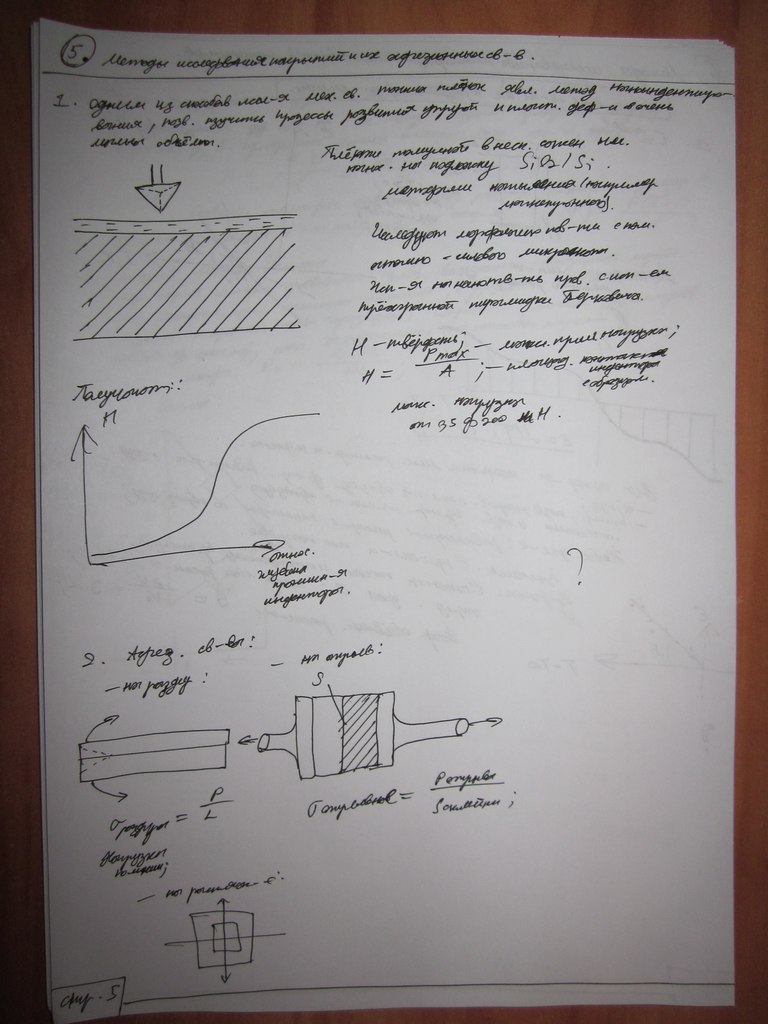 5. Методы исследования покрытий и их адгезионных св-в.
1. Одним из способов исп-я мех. св. тонких плёнок явл. метод наноиндентиро-
вания, позв. изучить процессы развития упругой и пласт. деф-и в очень
малых объёмах.
Плёнки толщиной в неск. сотен нм.
на подложку SiO2/Si.
методами напыления (например
магнетронного).
Исследуют морфологию пов-ти с пом.
атомно-силового микроскопа.
Исп-я на нанотв-ть пров. с исп-ем
трёхгранной пирамидки Берковича.
H - твёрдость;
H = Pmax / A ; - макс. прил. нагрузка;
- площадь контакта
индентора
с образцом.
макс. нагрузка
от 0,5 до 200 Н.
Получают:
H
относ.
глубина
проник-я
индентора.
?
2. Адгез. св-ва:
- на раздир:
- на отрыв:
S
σ раздира = P / L
нагрузка
σ отрывов = P отрыва / S склейки ;
- на растяж-е:
стр. 5